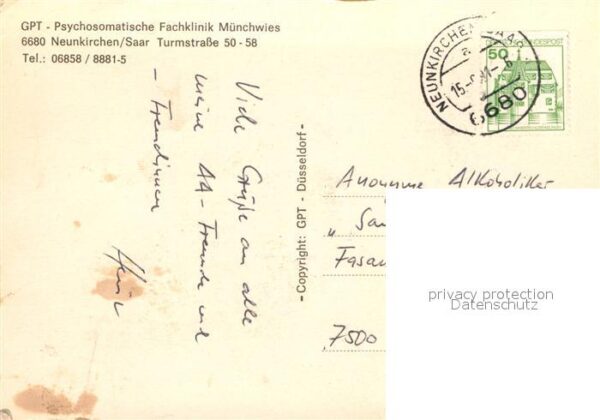 GPT - Psychosomatische Fachklinik Münchwies
6680 Neunkirchen/Saar Turmstraße 50 - 58
Tel.: 06858 / 8881-5
Viele Grüße an alle
meine AA-Freunde und
- Freundinnen
- Copyright: GPT - Düsseldorf -
NEUNKIRCHEN, SAAR
6680
50
BUNDESPOST
Anonyme Alkoholiker
7500
privacy protection
Datenschutz